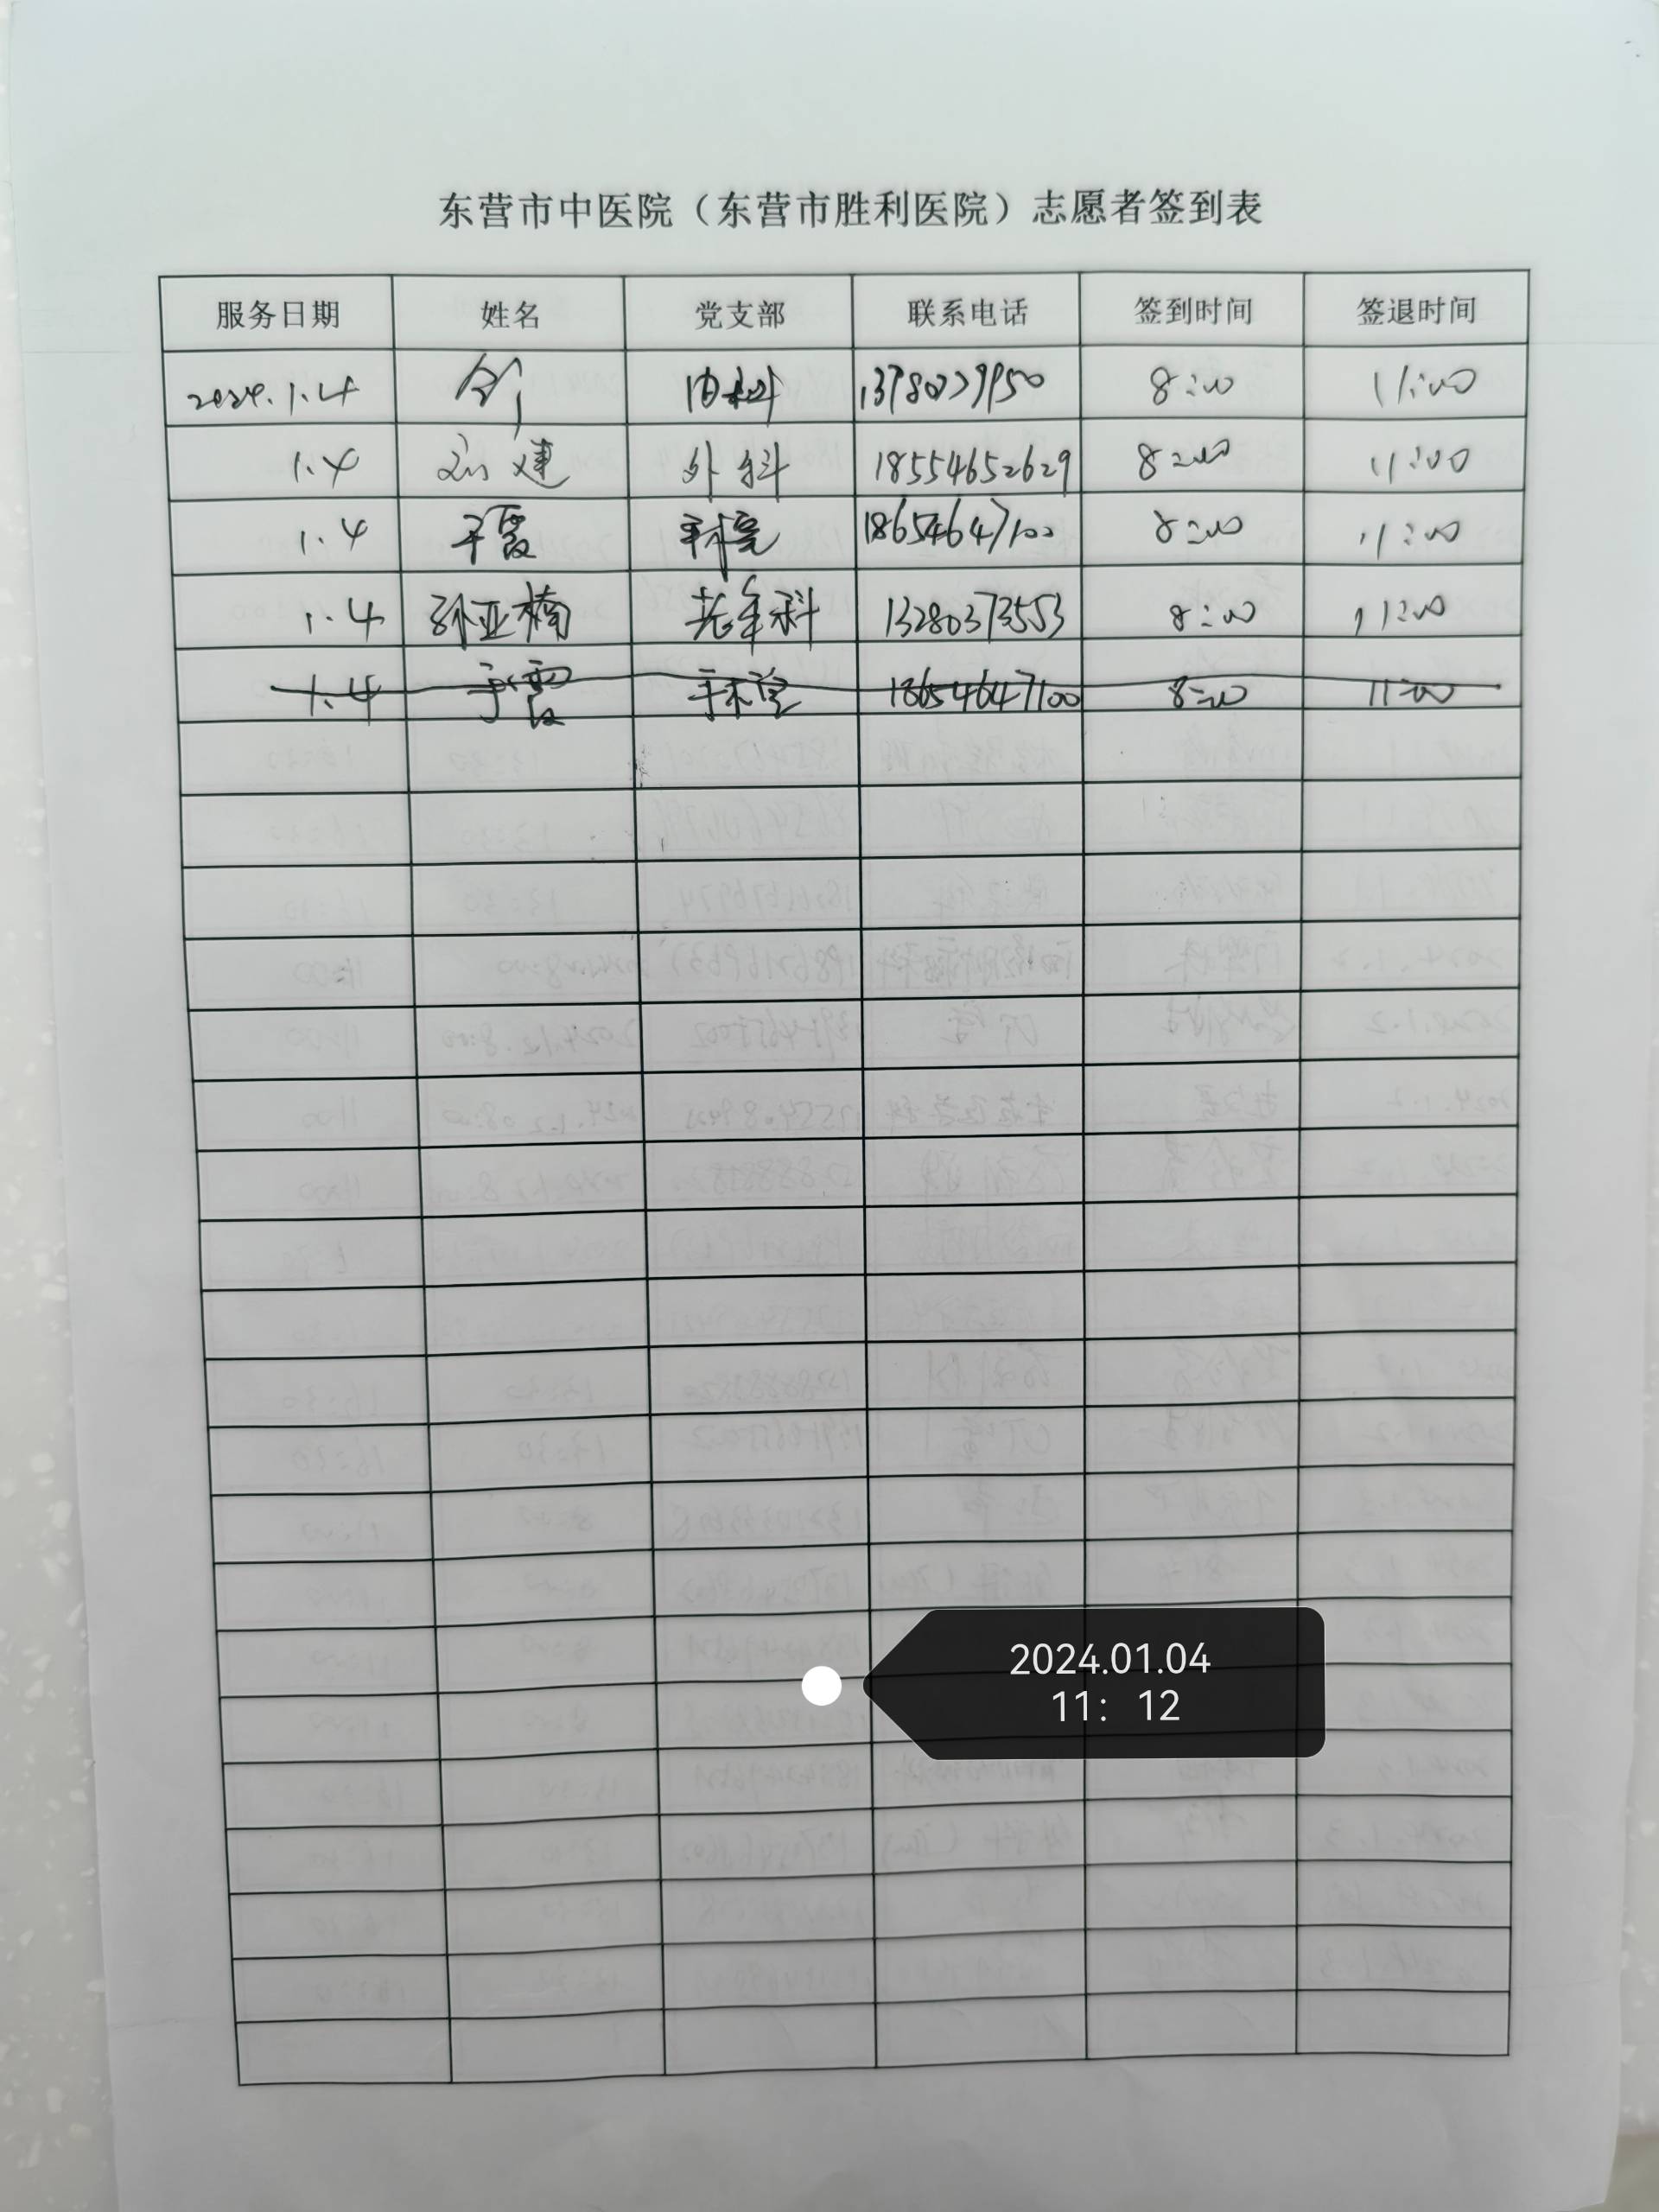 东营市中医院（东营市胜利医院）志愿者签到表
服务日期 姓名 党支部 联系电话 签到时间 签退时间
2024.1.4 内科 13780779950 8:00 11:00
1.4 刘建 外科 18554652629 8:00 11:00
1.4 于霞 手术室 18654647100 8:00 11:00
1.4 孙亚楠 老年科 13280373553 8:00 11:00
1.4 于霞 手术室 18654647100 8:00 11:00
2024.01.04
11：12